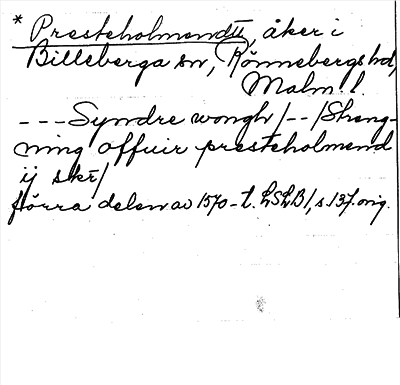 * Presteholmendt, åker i
Billeberga sn, Rönnebergs hd,
Malm. l.
---Syndre wongh/--/Sheng-
ning offuir presteholmend
ij skr/
förra delen av 1570-t. LSLB1, s. 137. orig.